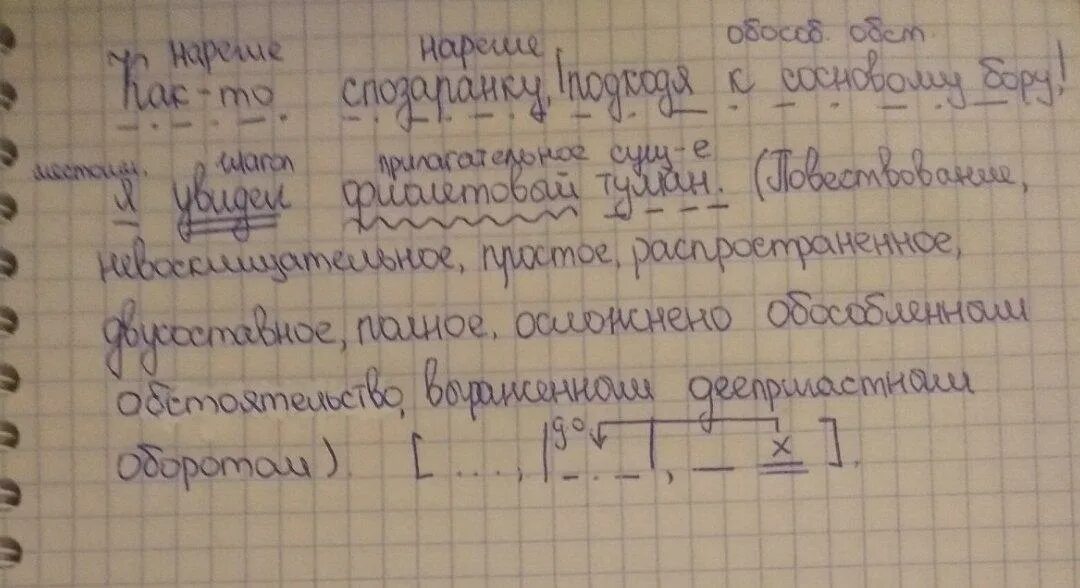 наречие наречие обособ. обст.
Как-то спозаранку, |подходя к сосновому бору|
местоим. глагол прилагательное сущ-е
я увидел фиолетовый туман. (Повествование,
невосклицательное, простое, распространенное,
двусоставное, полное, осложнено обособленным
обстоятельство, выраженным деепричастным
оборотом). [ ..., |до |, — x ].